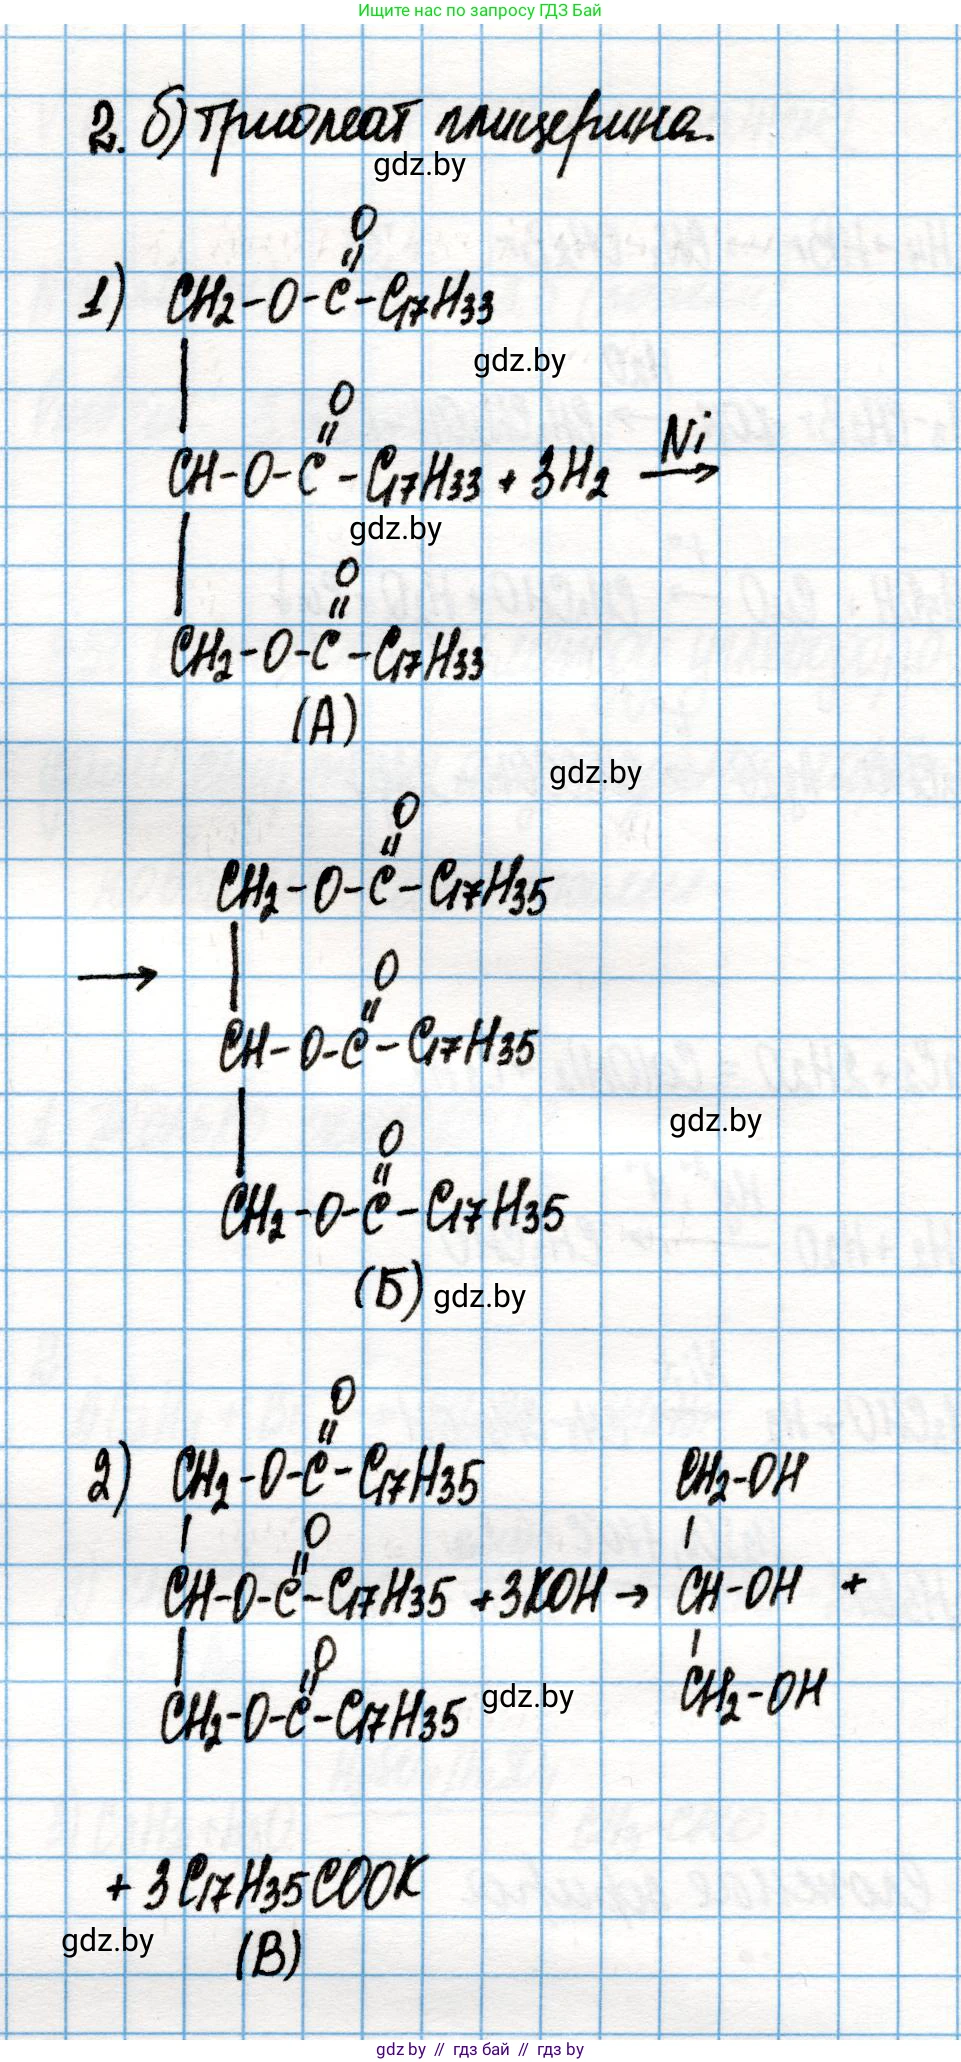 Ищите нас по запросу ГДЗ Бай
2. б) триолеат глицерина.
gdz.by
O
||
1) CH2-O-C-C17H33
|
gdz.by
O
||
Ni
CH-O-C-C17H33 + 3H2 →
|
gdz.by
O
||
CH2-O-C-C17H33
(А)
gdz.by
O
||
CH2-O-C-C17H35
|
→
O
||
CH-O-C-C17H35
|
gdz.by
O
||
CH2-O-C-C17H35
(Б)
gdz.by
O
||
2) CH2-O-C-C17H35 CH2-OH
| O |
||
CH-O-C-C17H35 +3KOH → CH-OH +
| O |
||
CH2-O-C-C17H35 gdz.by CH2-OH
+ 3C17H35COOK
gdz.by
(В)
gdz.by // гдз бай // gdz.by